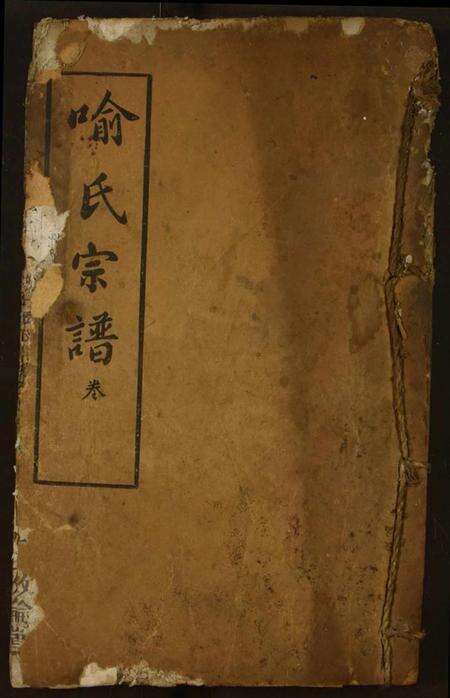 喻氏宗譜
卷